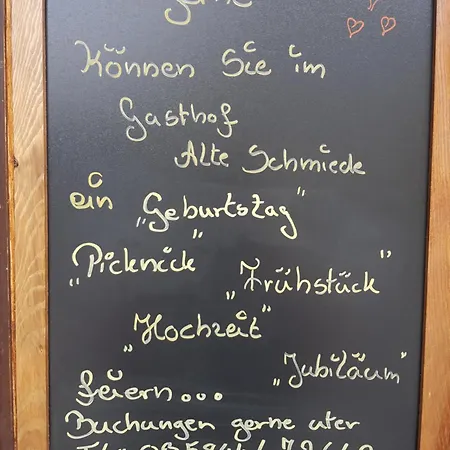 gerne
Können Sie im
Gasthof
Alte Schmiede
ein „Geburtstag"
„Picknick" „Frühstück"
„Hochzeit"
„Jubiläum"
feiern...
Buchungen gerne uter